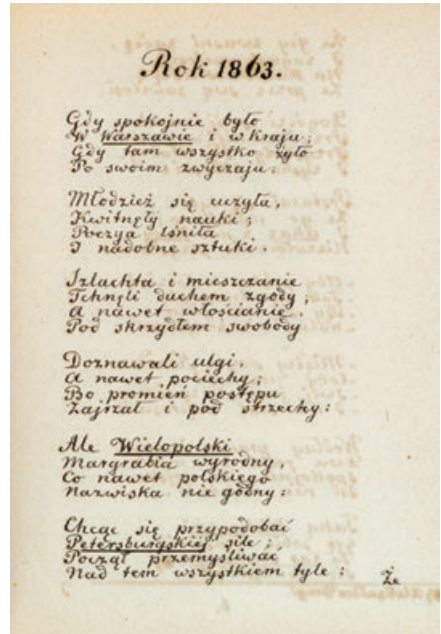 Rok 1863.
Gdy spokojnie było
W Warszawie i w kraju;
Gdy tam wszystko żyło
Po swoim zwyczaju:
Młodzież się uczyła,
Kwitnęły nauki;
Poezya lśniła
I nadobne sztuki.
Szlachta i mieszczanie
Tchnęli duchem zgody,
A nawet włościanie.
Pod skrzydłem swobody
Doznawali ulgi.
A nawet pociechy;
Bo promień postępu
Zajrzał i pod strzechy:
Ale Wielopolski
Margrabia wyrodny,
Co nawet polskiego
Nazwiska nie godny:
Chcąc się przypodobać
Petersburgskiej sile;
Począł przemyśliwać
Nad tem wszystkiem tyle:
Że